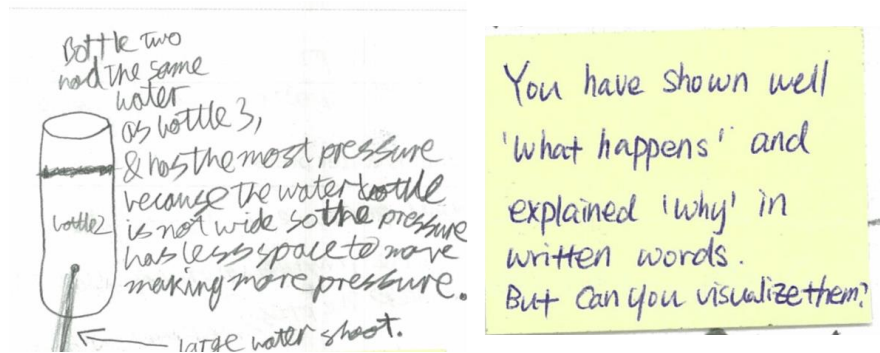 Bottle two
had the same
water
as bottle 3,
& has the most pressure
because the water bottle
is not wide so the pressure
has less space to move
making more pressure.
bottle2
large water shoot.
You have shown well
'what happens' and
explained 'why' in
written words.
But can you visualize them?